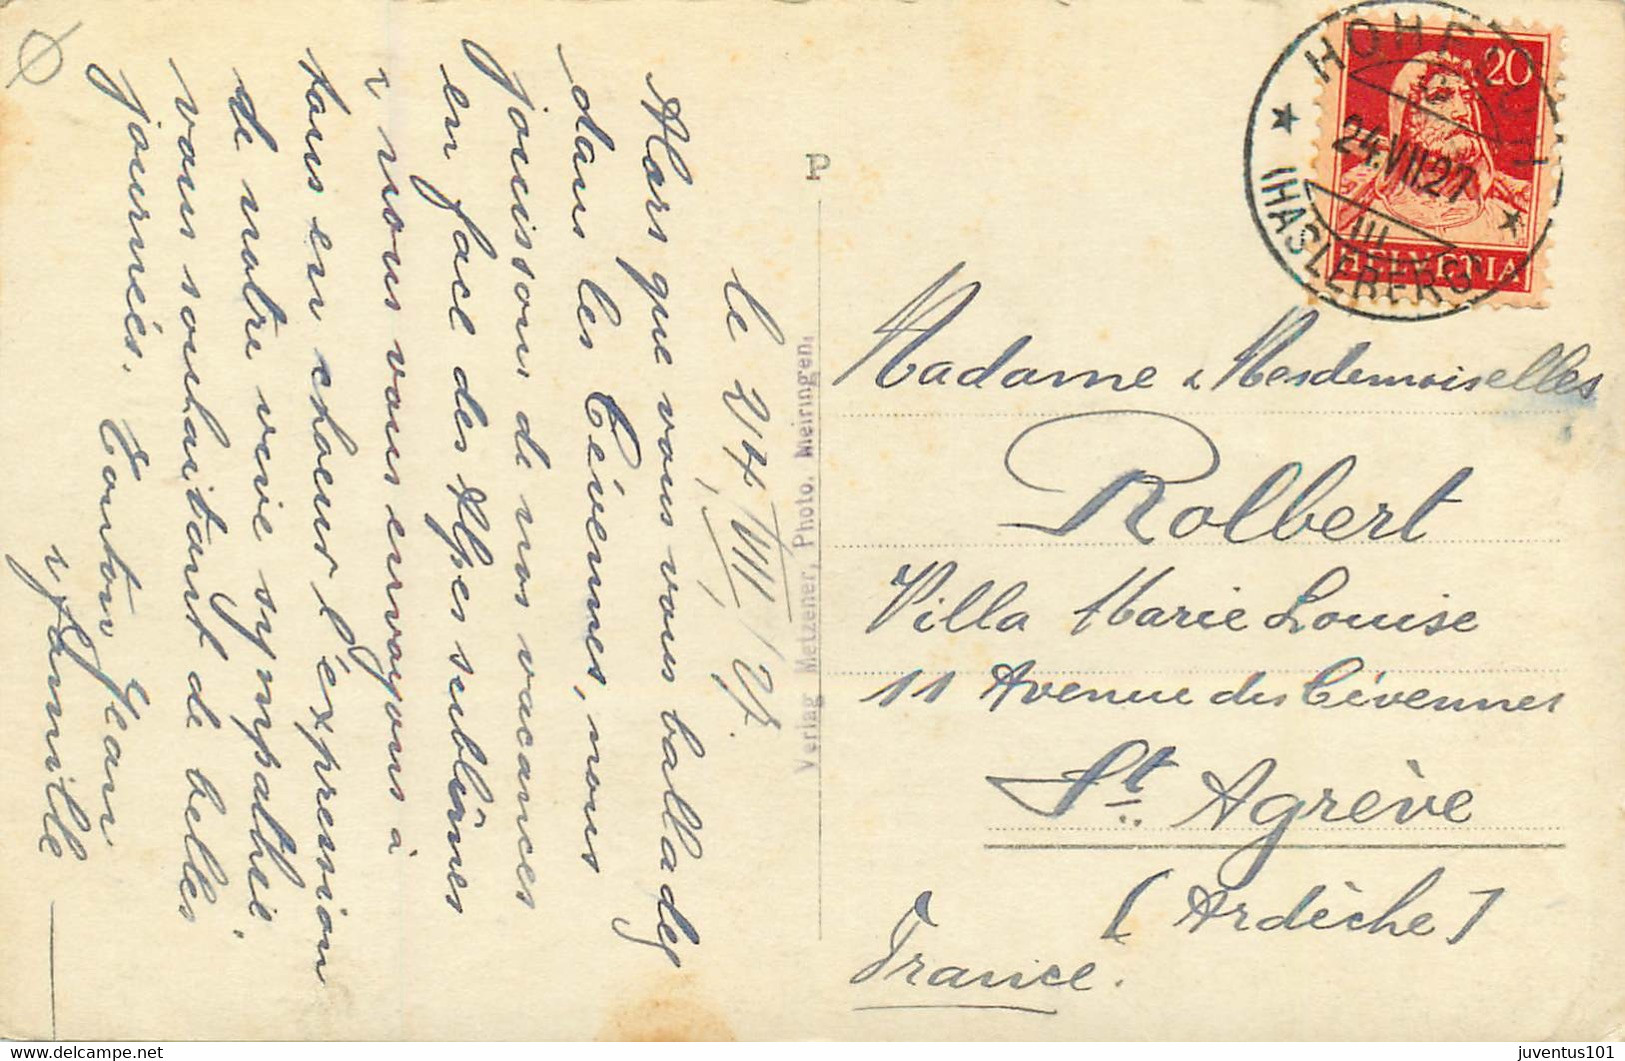 le 24/VII/27.
Alors que vous vous balladez
dans les Cévennes, nous
jouissons de nos vacances
en face des Alpes sublimes
& nous vous envoyons à
tous en choeur l'expression
de notre vive sympathie.
vous souhaitant de belles
journées. Tonton Jean
& famille
P
Verlag Metzener, Photo. Meiringen.
HOHFLUH
24.VII.27
III
(HASLEBERG)
20
HELVETIA
Madame & Mesdemoiselles
Rolbert
Villa Marie Louise
11 Avenue des Cévennes
St. Agrève
(Ardèche)
France.
juventus101
delcampe.net